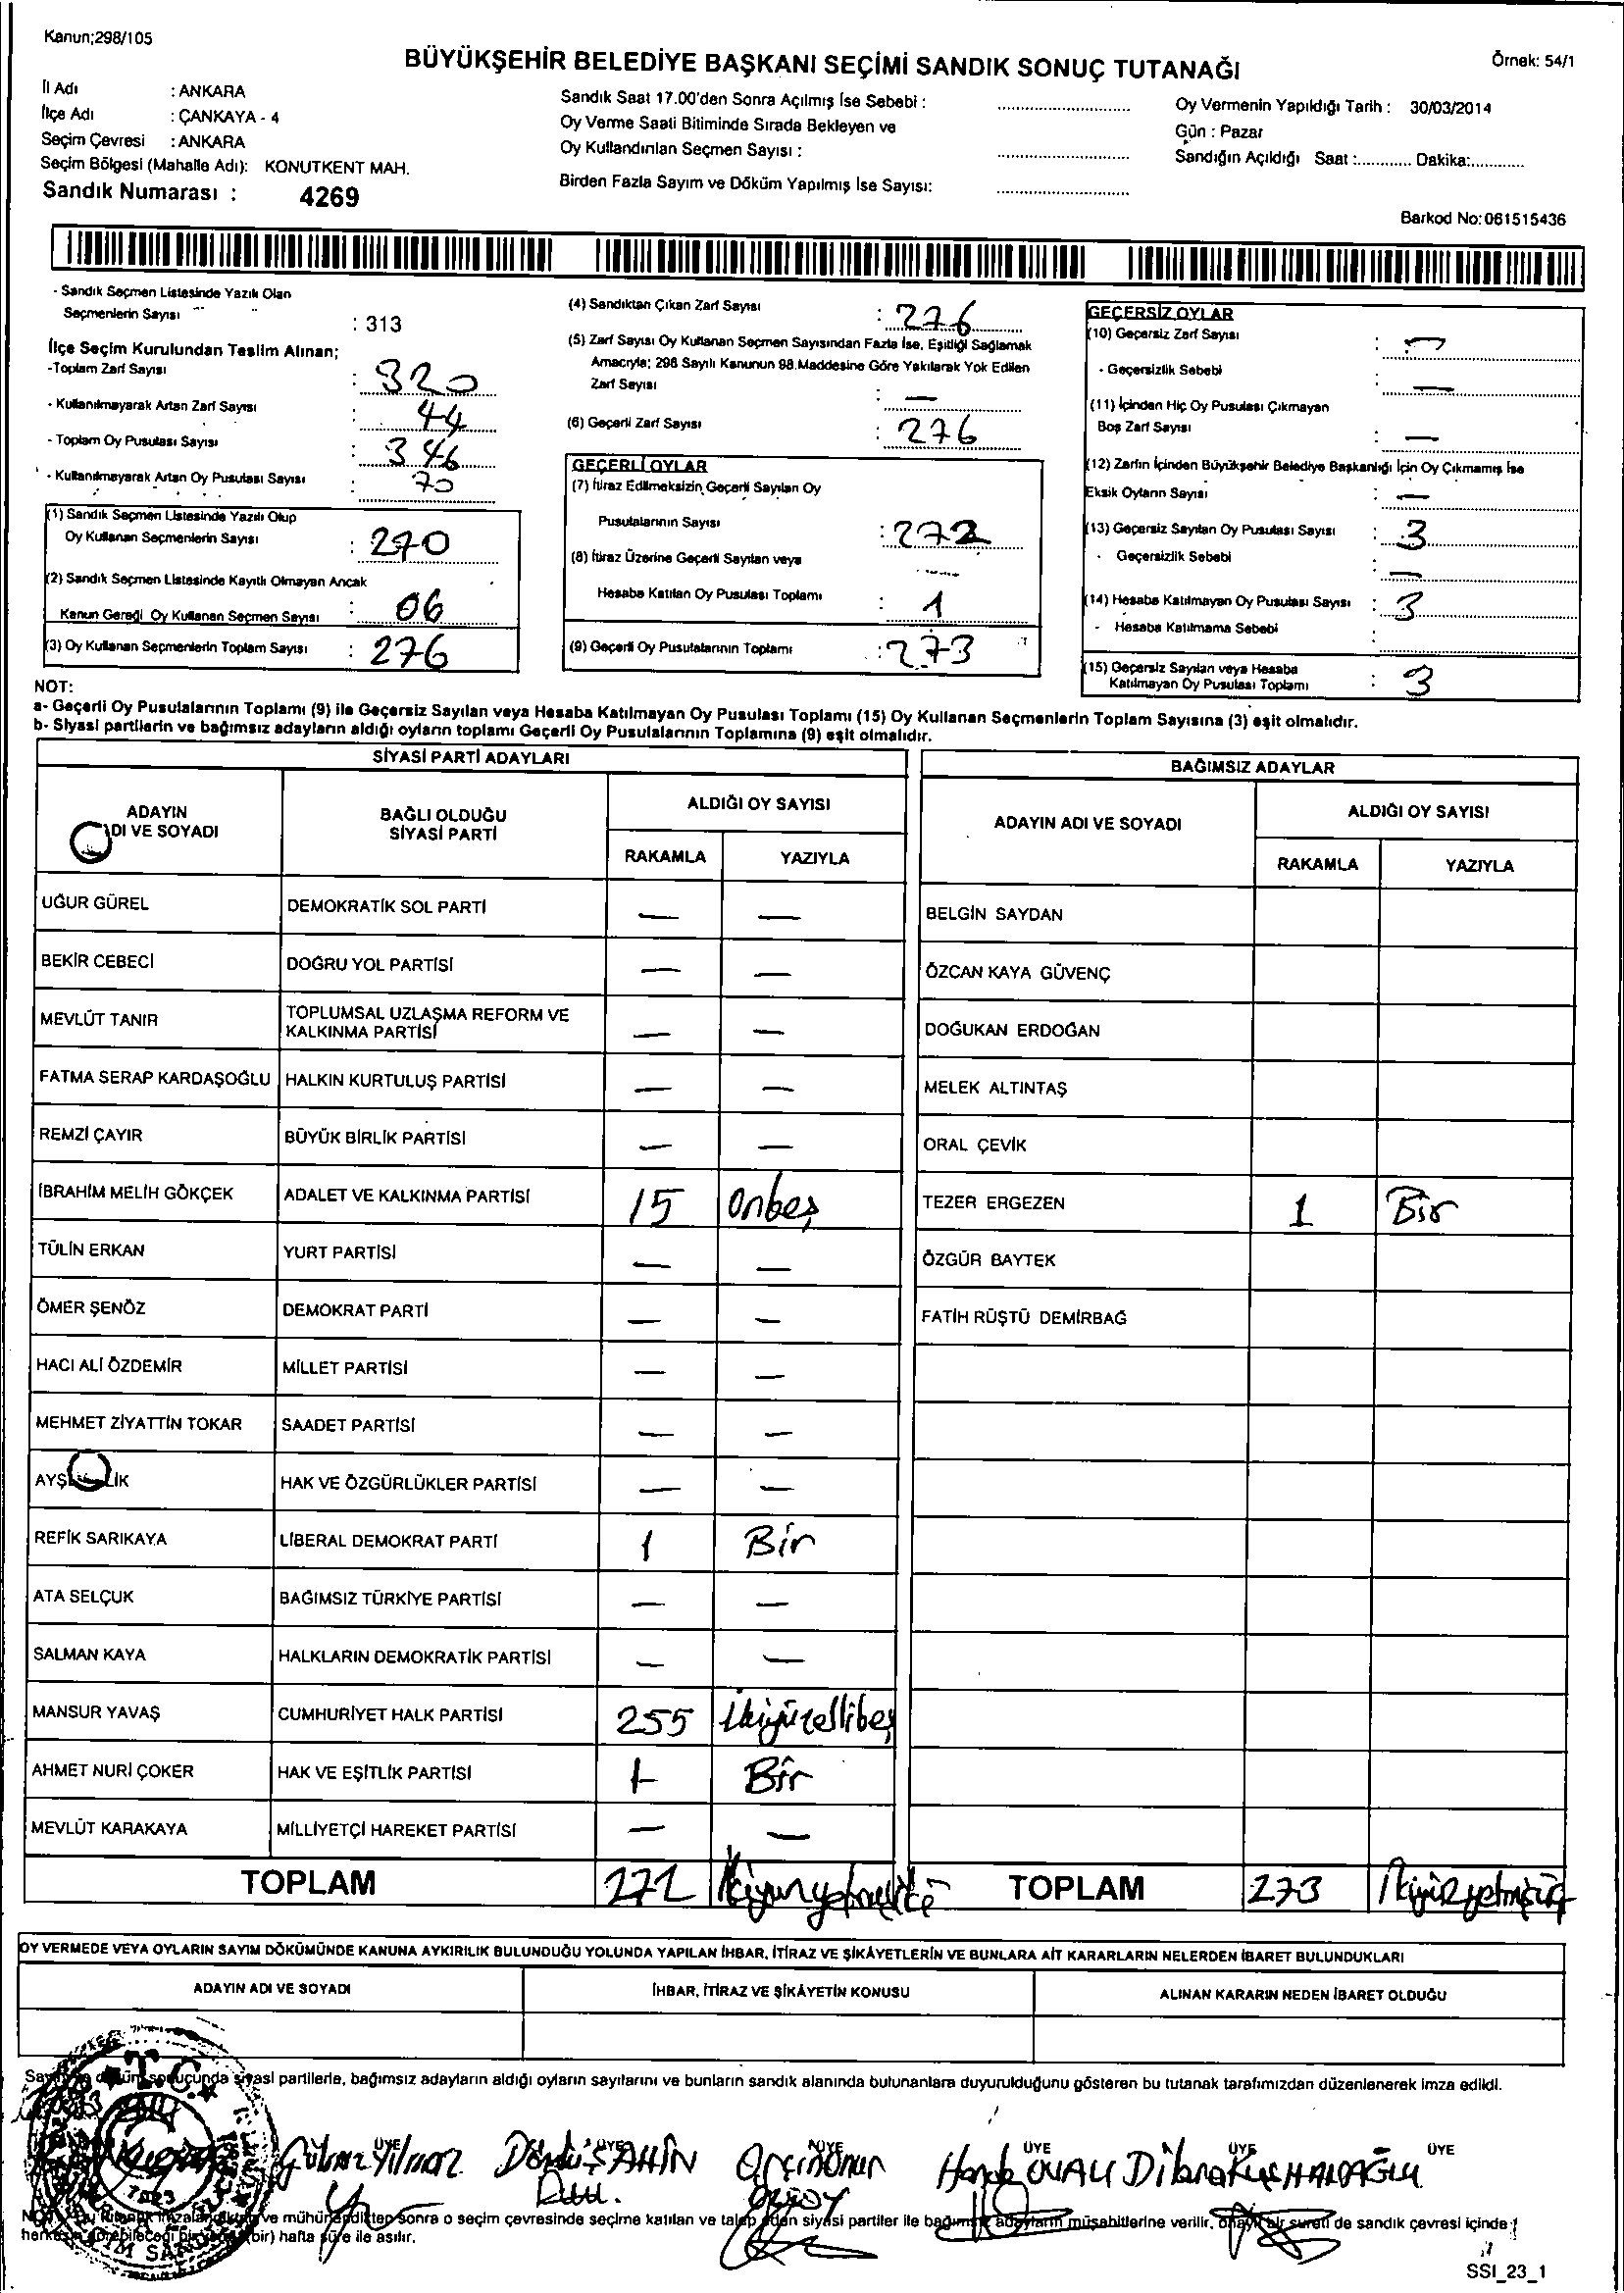 Kanun;298/105
BÜYÜKŞEHİR BELEDİYE BAŞKANI SEÇİMİ SANDIK SONUÇ TUTANAĞI
Örnek: 54/1
İl Adı : ANKARA
İlçe Adı : ÇANKAYA - 4
Seçim Çevresi : ANKARA
Seçim Bölgesi (Mahalle Adı): KONUTKENT MAH.
Sandık Numarası : 4269
Sandık Saat 17.00'den Sonra Açılmış İse Sebebi : ............
Oy Verme Saati Bitiminde Sırada Bekleyen ve
Oy Kullandırılan Seçmen Sayısı : ............
Birden Fazla Sayım ve Döküm Yapılmış İse Sayısı: ............
Oy Vermenin Yapıldığı Tarih : 30/03/2014
Gün : Pazar
Sandığın Açıldığı Saat :............ Dakika:............
Barkod No:061515436
- Sandık Seçmen Listesinde Yazılı Olan
Seçmenlerin Sayısı : 313
İlçe Seçim Kurulundan Teslim Alınan;
-Toplam Zarf Sayısı : 320
- Kullanılmayarak Artan Zarf Sayısı : 44
- Toplam Oy Pusulası Sayısı : 346
- Kullanılmayarak Artan Oy Pusulası Sayısı : 70
(1) Sandık Seçmen Listesinde Yazılı Olup
Oy Kullanan Seçmenlerin Sayısı : 270
(2) Sandık Seçmen Listesinde Kayıtlı Olmayan Ancak
Kanun Gereği Oy Kullanan Seçmen Sayısı : 06
(3) Oy Kullanan Seçmenlerin Toplam Sayısı : 276
(4) Sandıktan Çıkan Zarf Sayısı : 276
(5) Zarf Sayısı Oy Kullanan Seçmen Sayısından Fazla İse, Eşitliği Sağlamak
Amacıyla; 298 Sayılı Kanunun 98.Maddesine Göre Yakılarak Yok Edilen
Zarf Sayısı : —
(6) Geçerli Zarf Sayısı : 276
GEÇERLİ OYLAR
(7) İtiraz Edilmeksizin Geçerli Sayılan Oy
Pusulalarının Sayısı : 272
(8) İtiraz Üzerine Geçerli Sayılan veya
Hesaba Katılan Oy Pusulası Toplamı : 1
(9) Geçerli Oy Pusulalarının Toplamı : 273
GEÇERSİZ OYLAR
(10) Geçersiz Zarf Sayısı : —
- Geçersizlik Sebebi : —
(11) İçinden Hiç Oy Pusulası Çıkmayan
Boş Zarf Sayısı : —
(12) Zarfın İçinden Büyükşehir Belediye Başkanlığı İçin Oy Çıkmamış İse
Eksik Oyların Sayısı : —
(13) Geçersiz Sayılan Oy Pusulası Sayısı : 3
- Geçersizlik Sebebi : —
(14) Hesaba Katılmayan Oy Pusulası Sayısı : 3
- Hesaba Katılmama Sebebi :
(15) Geçersiz Sayılan veya Hesaba
Katılmayan Oy Pusulası Toplamı : 3
NOT:
a- Geçerli Oy Pusulalarının Toplamı (9) ile Geçersiz Sayılan veya Hesaba Katılmayan Oy Pusulası Toplamı (15) Oy Kullanan Seçmenlerin Toplam Sayısına (3) eşit olmalıdır.
b- Siyasi partilerin ve bağımsız adayların aldığı oyların toplamı Geçerli Oy Pusulalarının Toplamına (9) eşit olmalıdır.
SİYASİ PARTİ ADAYLARI
ADAYIN
DI VE SOYADI
BAĞLI OLDUĞU
SİYASİ PARTİ
ALDIĞI OY SAYISI
RAKAMLA YAZIYLA
UĞUR GÜREL DEMOKRATİK SOL PARTİ — —
BEKİR CEBECİ DOĞRU YOL PARTİSİ — —
MEVLÜT TANIR TOPLUMSAL UZLAŞMA REFORM VE
KALKINMA PARTİSİ — —
FATMA SERAP KARDAŞOĞLU HALKIN KURTULUŞ PARTİSİ — —
REMZİ ÇAYIR BÜYÜK BİRLİK PARTİSİ — —
İBRAHİM MELİH GÖKÇEK ADALET VE KALKINMA PARTİSİ 15 Onbeş
TÜLİN ERKAN YURT PARTİSİ — —
ÖMER ŞENÖZ DEMOKRAT PARTİ — —
HACI ALİ ÖZDEMİR MİLLET PARTİSİ — —
MEHMET ZİYATTİN TOKAR SAADET PARTİSİ — —
HAK VE ÖZGÜRLÜKLER PARTİSİ — —
REFİK SARIKAYA LİBERAL DEMOKRAT PARTİ 1 Bir
ATA SELÇUK BAĞIMSIZ TÜRKİYE PARTİSİ — —
SALMAN KAYA HALKLARIN DEMOKRATİK PARTİSİ — —
MANSUR YAVAŞ CUMHURİYET HALK PARTİSİ 255 ikiyüzellibeş
AHMET NURİ ÇOKER HAK VE EŞİTLİK PARTİSİ 1 Bir
MEVLÜT KARAKAYA MİLLİYETÇİ HAREKET PARTİSİ — —
TOPLAM 272 ikiyüzyetmişiki
BAĞIMSIZ ADAYLAR
ADAYIN ADI VE SOYADI
ALDIĞI OY SAYISI
RAKAMLA YAZIYLA
BELGİN SAYDAN
ÖZCAN KAYA GÜVENÇ
DOĞUKAN ERDOĞAN
MELEK ALTINTAŞ
ORAL ÇEVİK
TEZER ERGEZEN 1 Bir
ÖZGÜR BAYTEK
FATİH RÜŞTÜ DEMİRBAĞ
TOPLAM 273 ikiyüzyetmişüç
OY VERMEDE VEYA OYLARIN SAYIM DÖKÜMÜNDE KANUNA AYKIRILIK BULUNDUĞU YOLUNDA YAPILAN İHBAR, İTİRAZ VE ŞİKÂYETLERİN VE BUNLARA AİT KARARLARIN NELERDEN İBARET BULUNDUKLARI
ADAYIN ADI VE SOYADI
İHBAR, İTİRAZ VE ŞİKÂYETİN KONUSU
ALINAN KARARIN NEDEN İBARET OLDUĞU
T.C.
siyasi partilerle, bağımsız adayların aldığı oyların sayılarını ve bunların sandık alanında bulunanlara duyurulduğunu gösteren bu tutanak tarafımızdan düzenlenerek imza edildi.
ÜYE ÜYE ÜYE ÜYE ÜYE ÜYE
Yılmaz ŞAHİN Onur Hande
ve mühürlendikten sonra o seçim çevresinde seçime katılan ve talep eden siyasi partiler ile bağımsız adayların müşahitlerine verilir, onaylı bir sureti de sandık çevresi içinde
(bir) hafta süre ile asılır.
1923
SSI_23_1